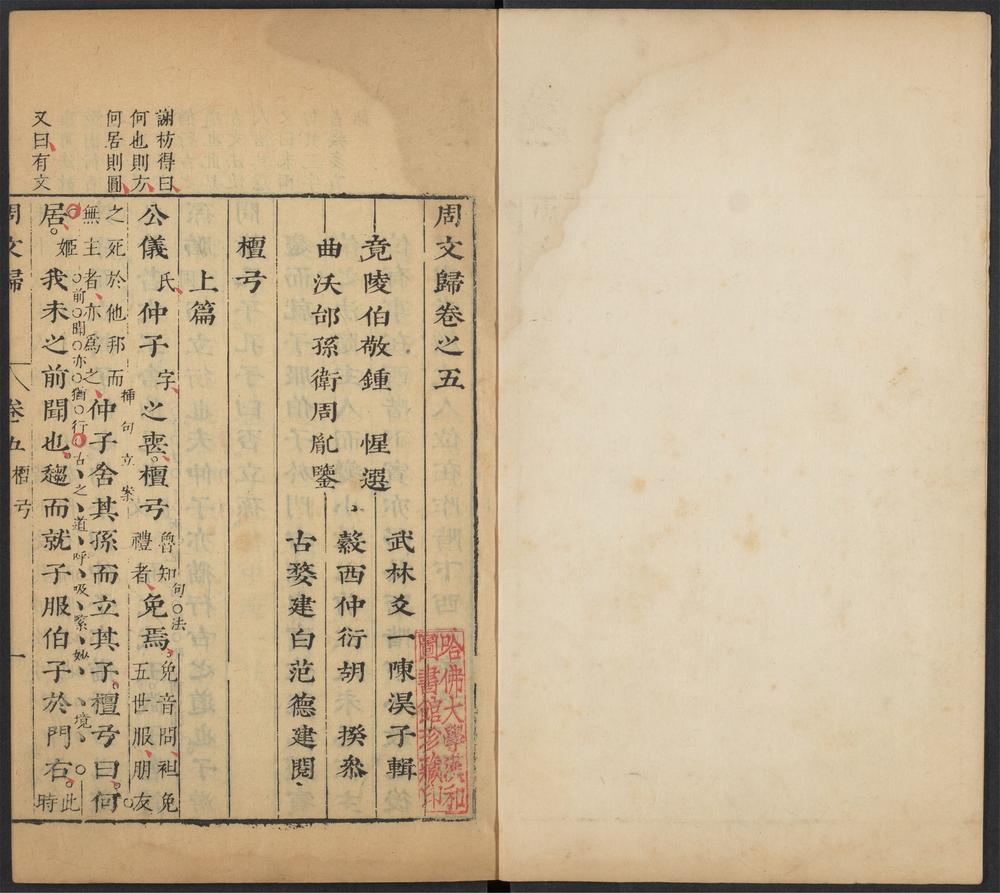 周文歸卷之五
竟陵伯敬鍾　惺選
武林爻一陳淏子輯
曲沃邰孫衛周胤鑒
穀西仲衍胡　揆叅
古婺建白范德建閱
檀弓
上篇
公儀氏仲子字之喪檀弓魯知禮者免焉免音問袒免五世服朋友
之死於他邦而無主者亦為之仲子舍其孫而立其子檀弓曰何
居姬我未之前聞也趨而就子服伯子於門右此時
謝枋得曰
何也則方
何居則圓
又曰有文
句法
插句立案
前聞亦猶行古之道呼吸緊妙境
周文歸
卷五
檀弓
一
哈佛大學漢和
圖書館珍藏印